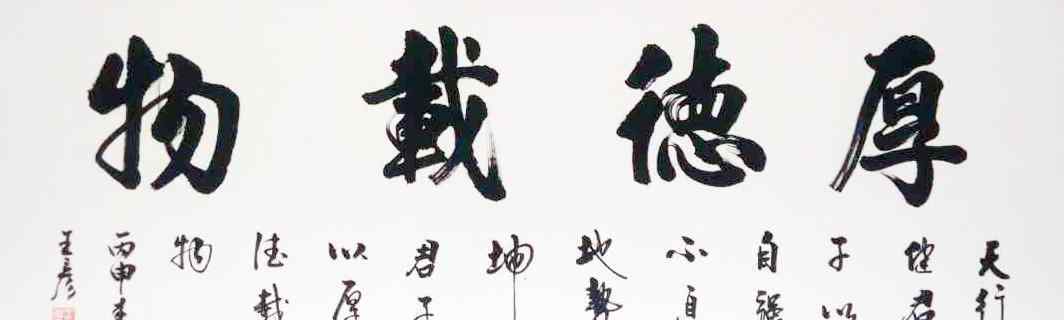 厚德載物
天行
健君
子以
自強
不息
地勢
坤
君子
以厚
德載
物
丙申
王彥